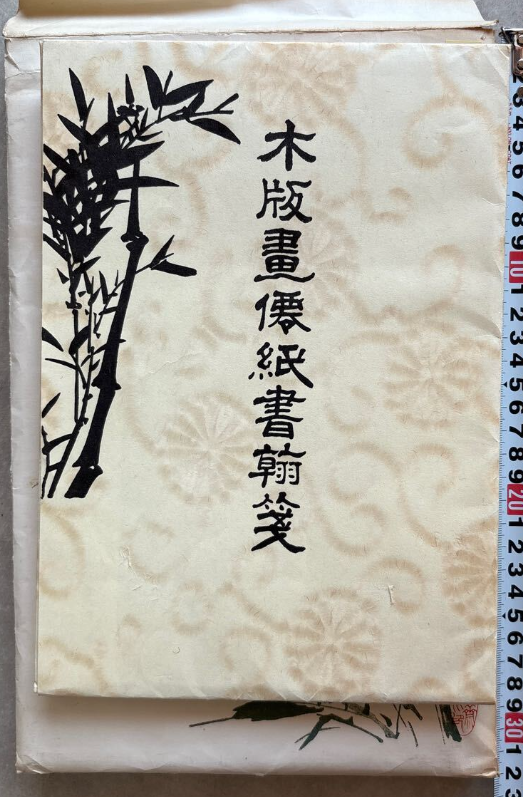 木版畫僊紙書翰笺
2 3 4 5 6 7 8 9 10 1 2 3 4 5 6 7 8 9 20 1 2 3 4 5 6 7 8 9 30 1 2 3